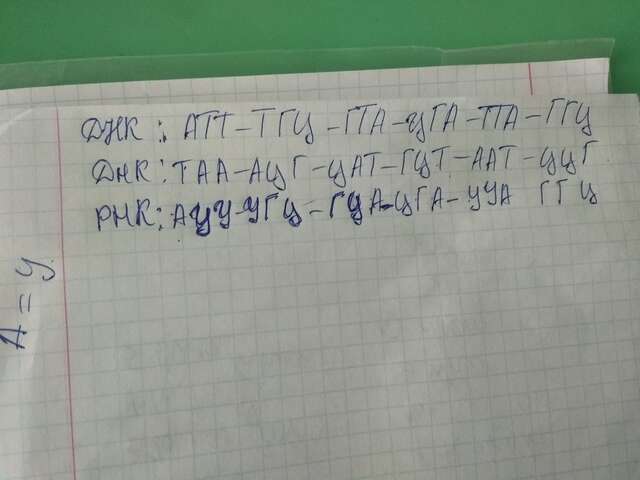 ДНК: АТТ-ТГЦ-ГТА-ЦГА-ТТА-ГГЦ
ДНК: ТАА-АЦГ-ЦАТ-ГЦТ-ААТ-ЦЦГ
РНК: АУУ-УГЦ-ГУА-ЦГА-УУА ГГЦ
А=У